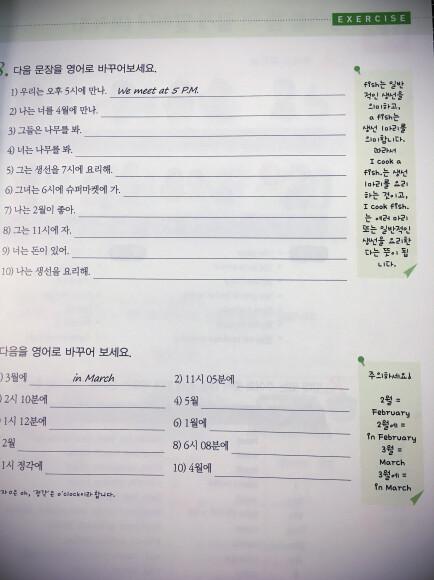 EXERCISE
8. 다음 문장을 영어로 바꾸어보세요.
1) 우리는 오후 5시에 만나. We meet at 5 P.M.
2) 나는 너를 4월에 만나.
3) 그들은 나무를 봐.
4) 너는 나무를 봐.
5) 그는 생선을 7시에 요리해.
6) 그녀는 6시에 슈퍼마켓에 가.
7) 나는 2월이 좋아.
8) 그는 11시에 자.
9) 너는 돈이 있어.
10) 나는 생선을 요리해.
fish는 일반
적인 생선을
의미하고,
a fish는
생선 1마리를
의미합니다.
따라서
I cook a
fish.는 생선
1마리를 요리
하는 것이고,
I cook fish.
는 여러 마리
또는 일반적인
생선을 요리한
다는 뜻이 됩
니다.
다음을 영어로 바꾸어 보세요.
) 3월에 in March
2) 11시 05분에
) 2시 10분에
4) 5월
) 1시 12분에
6) 1월에
2월
8) 6시 08분에
1시 정각에
10) 4월에
자 0은 oh, '정각'은 o'clock이라 합니다.
주의하세요!
2월 =
February
2월에 =
in February
3월 =
March
3월에 =
in March